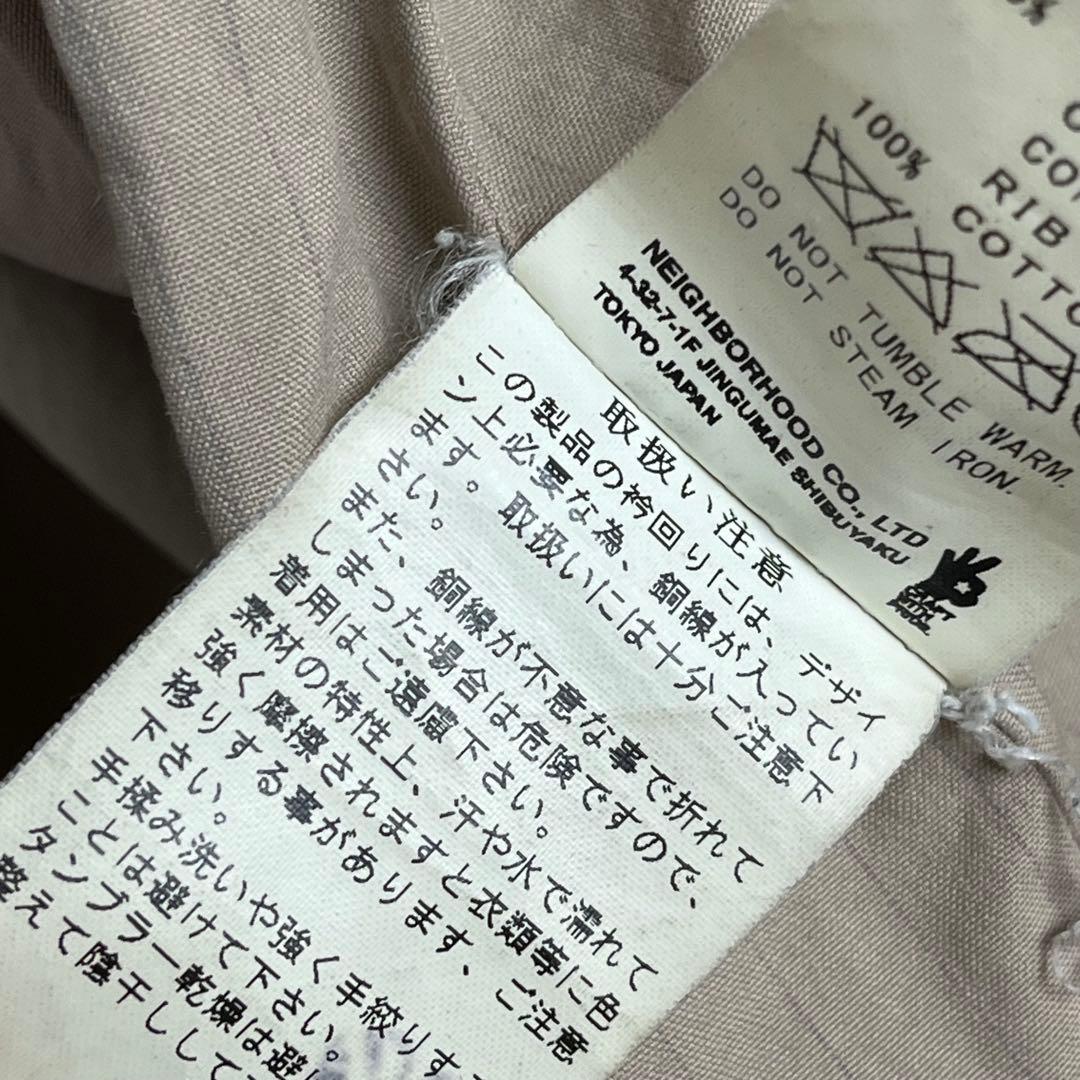 100%
RIB
DO NOT TUMBLE WARM.
DO NOT STEAM IRON.
NEIGHBORHOOD CO., LTD
4-32-7-1F JINGUMAE SHIBUYAKU
TOKYO JAPAN
取扱い注意
この製品の衿回りには、デザイ
ン上必要な為、銅線が入ってい
ます。取扱いには十分ご注意下
さい。
また、銅線が不意な事で折れて
しまった場合は危険ですので、
着用はご遠慮下さい。
素材の特性上、汗や水で濡れて
強く摩擦されますと衣類等に色
移りする事があります、ご注意
下さい。
手揉み洗いや強く手絞りす
ことは避けて下さい。
タンブラー乾燥は避
整えて陰干しして